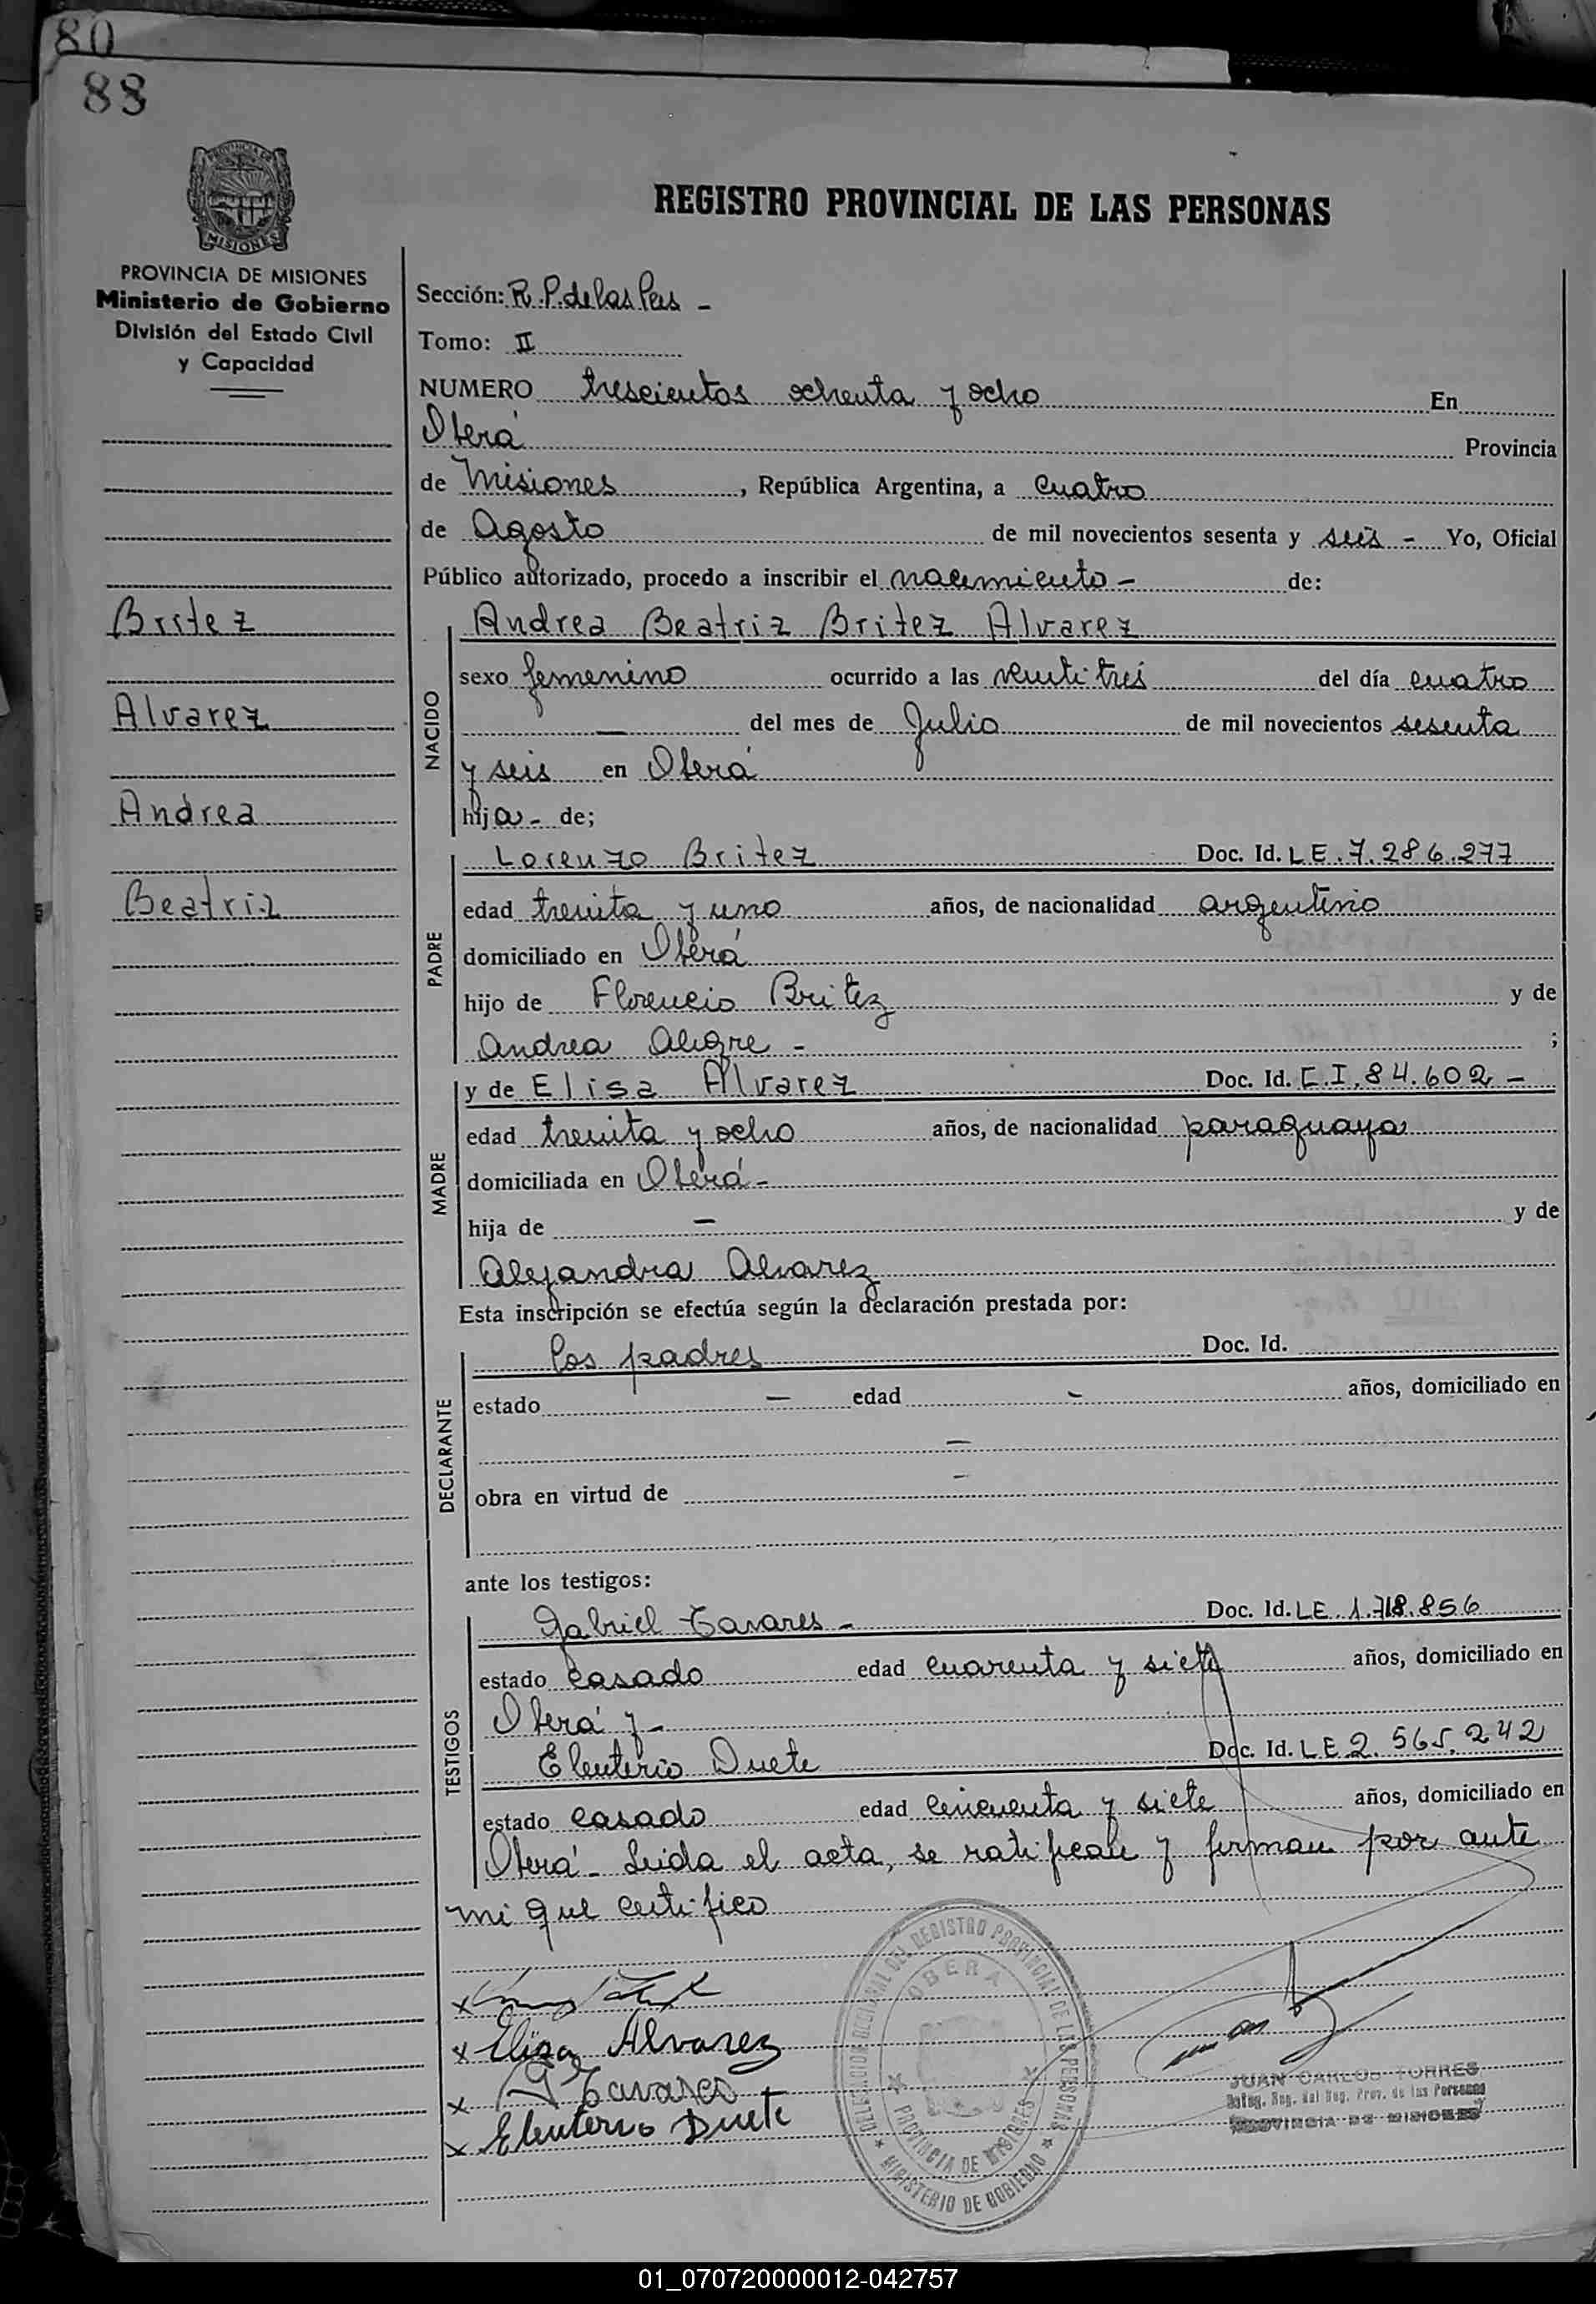 80
88
PROVINCIA DE MISIONES
Ministerio de Gobierno
División del Estado Civil
y Capacidad
Britez
Alvarez
Andrea
Beatriz
REGISTRO PROVINCIAL DE LAS PERSONAS
Sección: R.P. de las Pers -
Tomo: II
NUMERO trescientos ochenta y ocho En
Oberá Provincia
de Misiones, República Argentina, a cuatro
de Agosto de mil novecientos sesenta y seis - Yo, Oficial
Público autorizado, procedo a inscribir el nacimiento - de:
NACIDO
Andrea Beatriz Britez Alvarez
sexo femenino ocurrido a las veintitres del día cuatro
— del mes de Julio de mil novecientos sesenta
y seis en Oberá
hija - de;
PADRE
Lorenzo Britez Doc. Id. LE. 7.286.277
edad treinta y uno años, de nacionalidad argentino
domiciliado en Oberá
hijo de Florencio Britez y de
Andrea Alegre - ;
MADRE
y de Elisa Alvarez Doc. Id. C.I. 84.602 -
edad treinta y ocho años, de nacionalidad paraguaya
domiciliada en Oberá -
hija de — y de
Alejandra Alvarez
Esta inscripción se efectúa según la declaración prestada por:
DECLARANTE
los padres Doc. Id.
estado — edad - años, domiciliado en
—
obra en virtud de -
ante los testigos:
TESTIGOS
Gabriel Tavares - Doc. Id. LE. 1.718.856
estado casado edad cuarenta y siete años, domiciliado en
Oberá y -
Eleuterio Duete Doc. Id. LE 2.565.242
estado casado edad cincuenta y siete años, domiciliado en
Oberá - Leida el acta, se ratifican y firman por ante
mi que certifico
x
x Elisa Alvarez
x Tavares
x Eleuterio Duete
DELEGACION REGIONAL DEL REGISTRO PROVINCIAL DE LAS PERSONAS
OBERA
PROVINCIA DE MISIONES
MINISTERIO DE GOBIERNO
JUAN CARLOS TORRES
Deleg. Reg. del Reg. Prov. de las Personas
PROVINCIA DE MISIONES
01_070720000012-042757